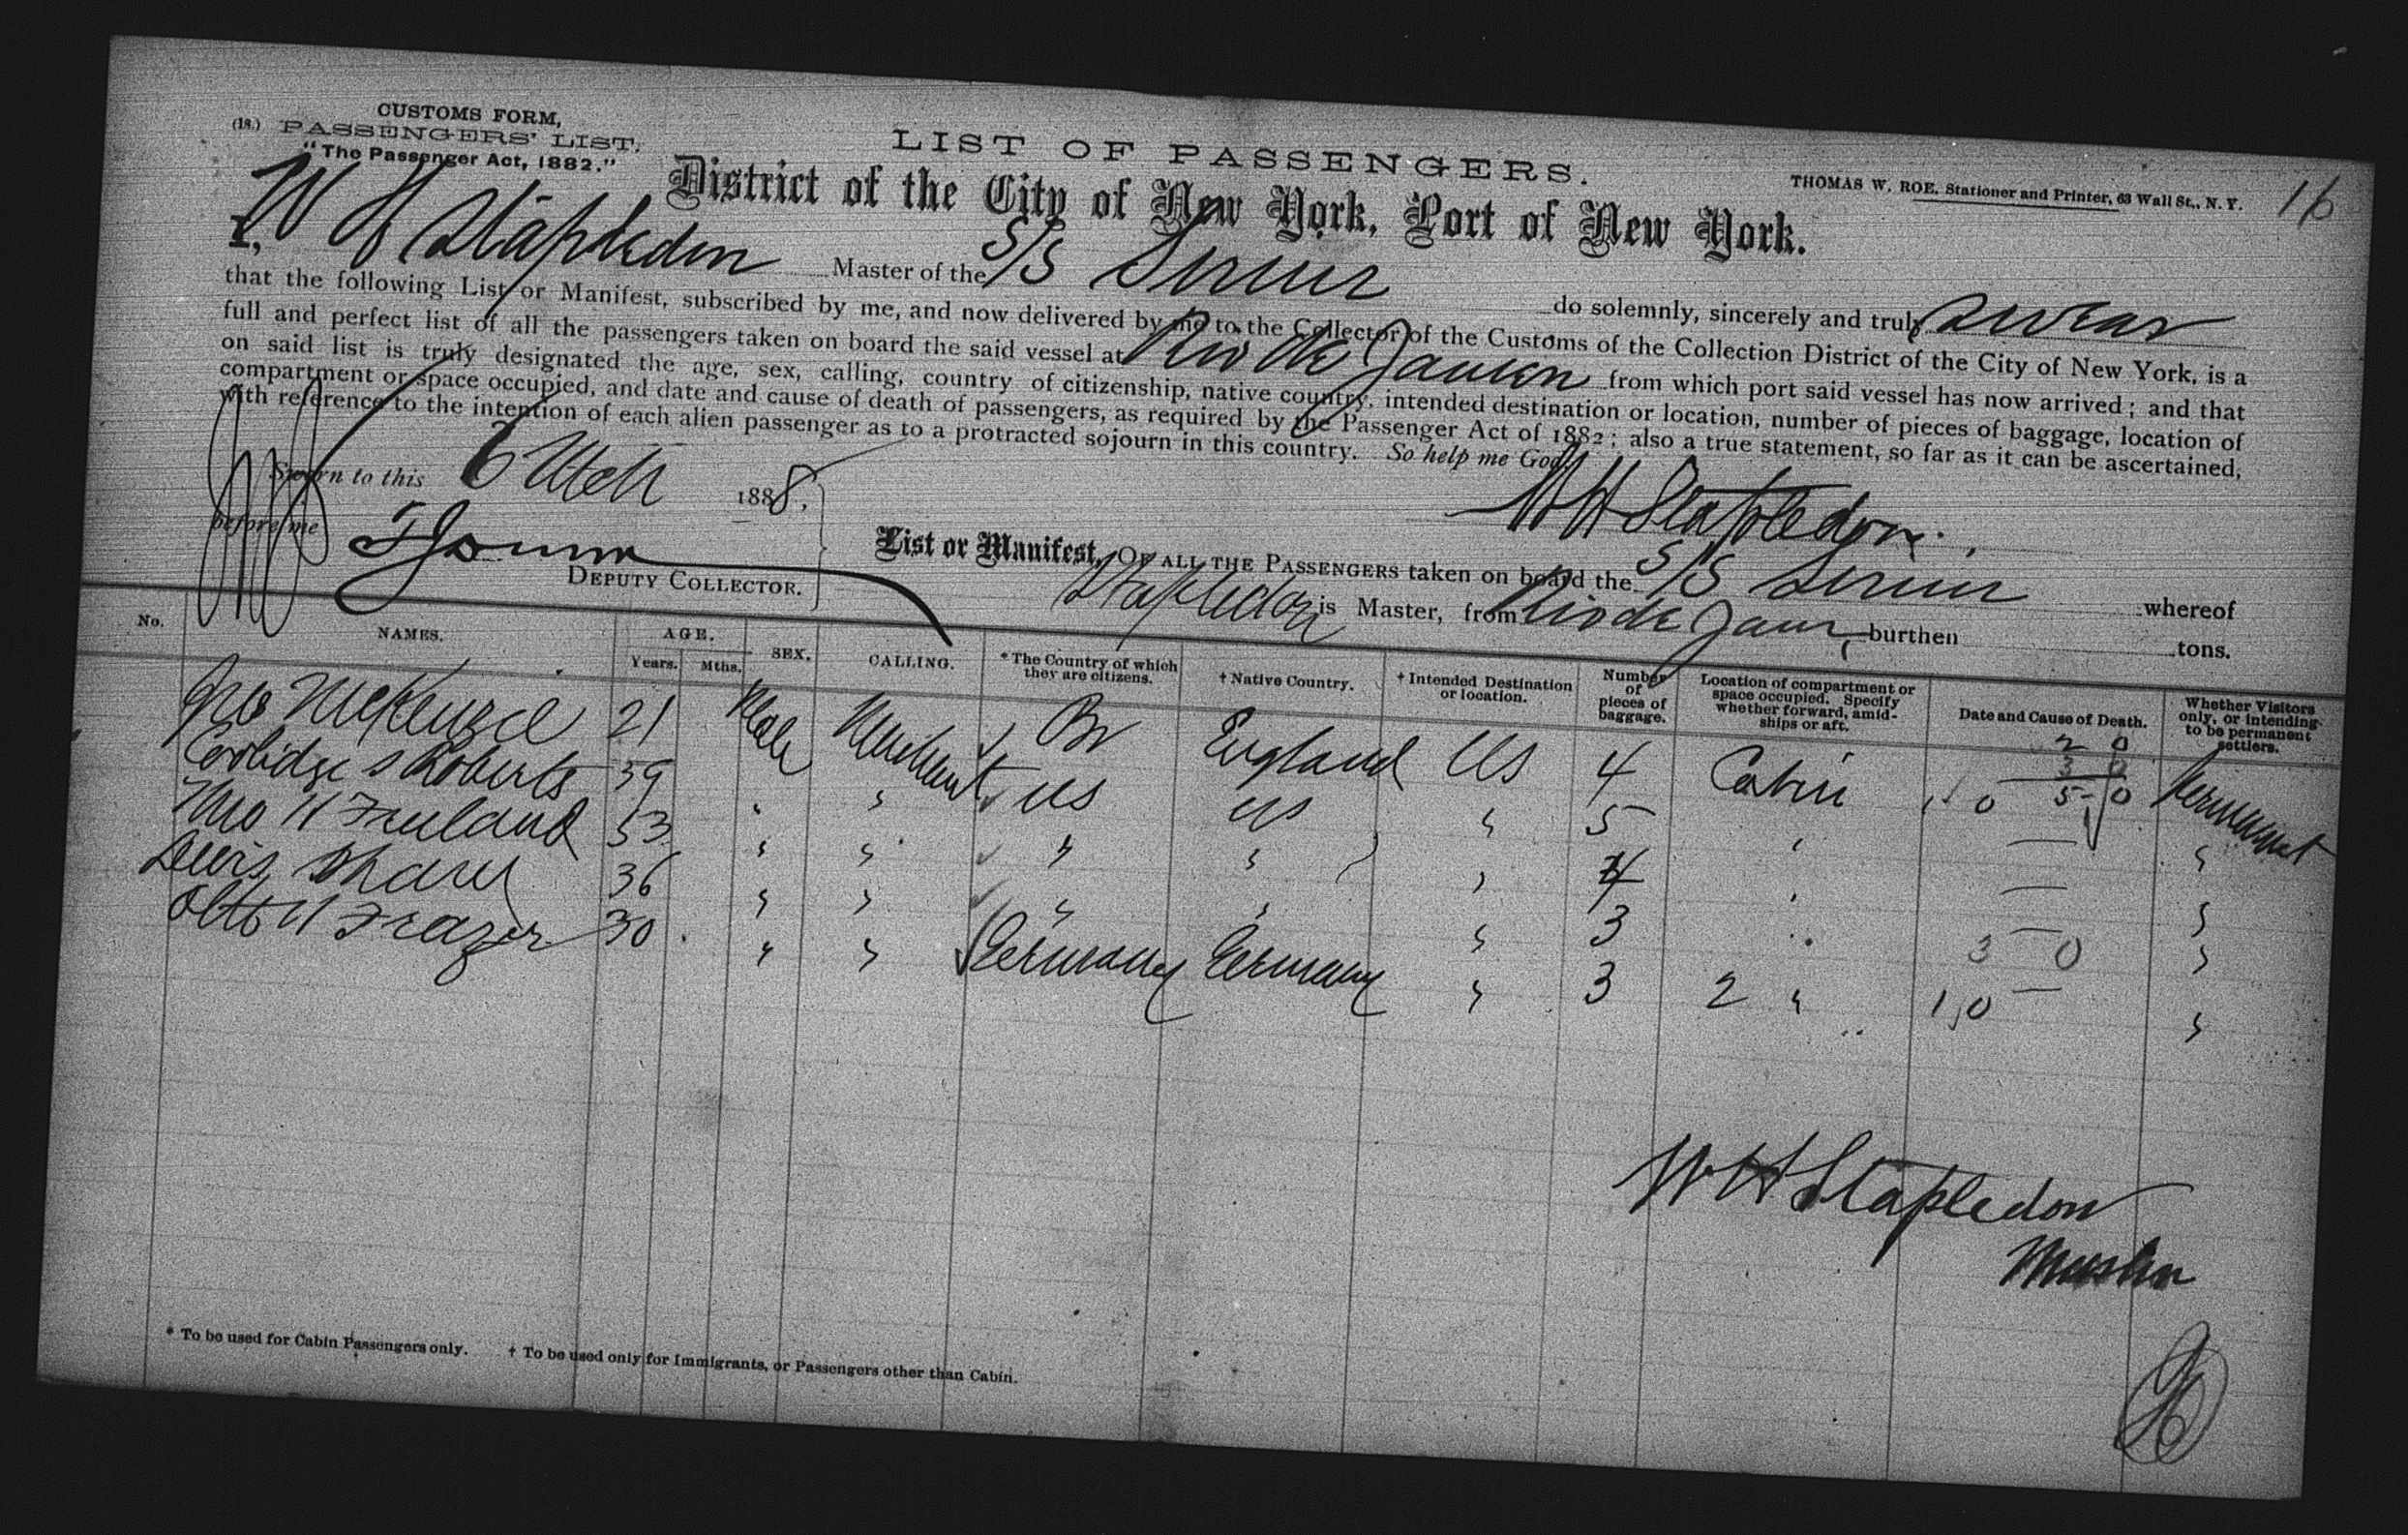 CUSTOMS FORM,
(18.) PASSENGERS' LIST.
"The Passenger Act, 1882."
LIST OF PASSENGERS.
THOMAS W. ROE, Stationer and Printer, 63 Wall St., N. Y.
16
District of the City of New York, Port of New York.
I, W H Stapledon Master of the S/S Sirius do solemnly, sincerely and truly swear
that the following List or Manifest, subscribed by me, and now delivered by me to the Collector of the Customs of the Collection District of the City of New York, is a
full and perfect list of all the passengers taken on board the said vessel at Rio de Janeiro from which port said vessel has now arrived; and that
on said list is truly designated the age, sex, calling, country of citizenship, native country, intended destination or location, number of pieces of baggage, location of
compartment or space occupied, and date and cause of death of passengers, as required by the Passenger Act of 1882; also a true statement, so far as it can be ascertained,
with reference to the intention of each alien passenger as to a protracted sojourn in this country. So help me God.
Sworn to this 6 Mch 1888.
W H Stapledon.
before me
DEPUTY COLLECTOR.
List or Manifest, OF ALL THE PASSENGERS taken on board the S/S Sirius whereof
Stapledon is Master, from Rio de Jan burthen tons.
No. NAMES. AGE. Years. Mths. SEX. CALLING. * The Country of which they are citizens. † Native Country. † Intended Destination or location. Number of pieces of baggage. Location of compartment or space occupied. Specify whether forward, amidships or aft. Date and Cause of Death. Whether Visitors only, or intending to be permanent settlers.
2 0
3 0
Jno McKenzie 21 Male Merchant Br England US 4 Cabin 0 5 0 Permanent
Coolidge S Roberts 39 " " US US " 5 " — "
Tho H Freeland 53 " " " " " 4 " — "
Lewis Sharp 36 " " " " " 3 " — "
3 0
Otto H Frazer 30 " " Germany Germany " 3 2 " 1 0 — "
W H Stapledon
Master
* To be used for Cabin Passengers only. † To be used only for Immigrants, or Passengers other than Cabin.